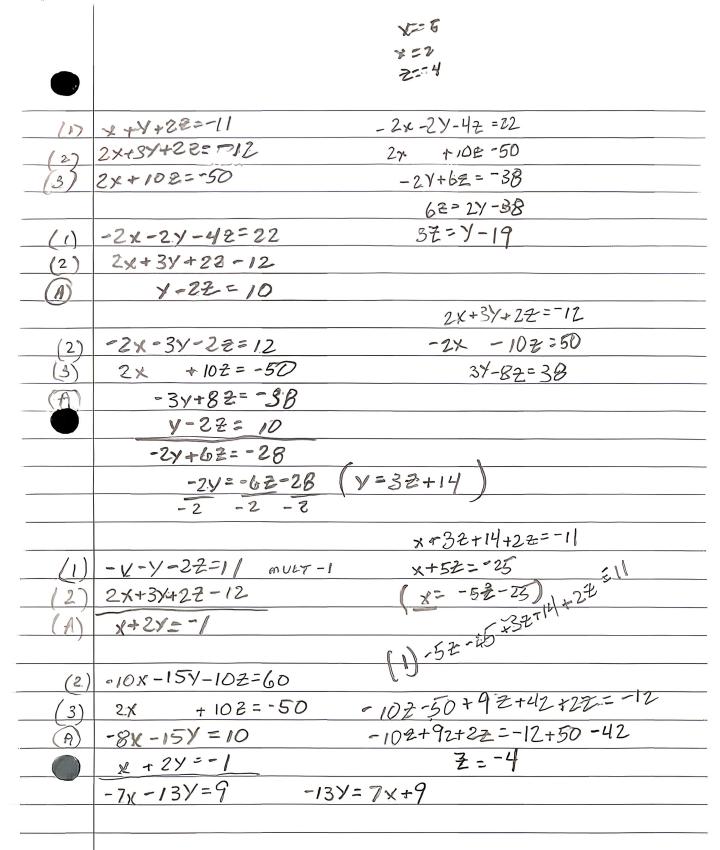 x=5
x=2
z=-4
(1) x+y+2z=-11
-2x-2y-4z=22
(2) 2x+3y+2z=-12
2x +10z -50
(3) 2x+10z=-50
-2y+6z=-38
6z=2y-38
(1) -2x-2y-4z=22
3z=y-19
(2) 2x+3y+2z-12
(A) y-2z=10
2x+3y+2z=-12
(2) -2x-3y-2z=12
-2x -10z=50
(3) 2x +10z=-50
3y-8z=38
(A) -3y+8z=-38
y-2z=10
-2y+6z=-28
-2y=-6z-28 (y=3z+14)
-2 -2 -2
x+3z+14+2z=-11
(1) -x-y-2z=11 MULT -1
x+5z=-25
(2) 2x+3y+2z-12
(x=-5z-25)
(A) x+2y=-1
(1) -5z-25+3z+14+2z=11
(2) -10x-15y-10z=60
(3) 2x +10z=-50
-10z-50+9z+42+2z=-12
(A) -8x-15y=10
-10z+9z+2z=-12+50-42
x+2y=-1
z=-4
-7x-13y=9
-13y=7x+9